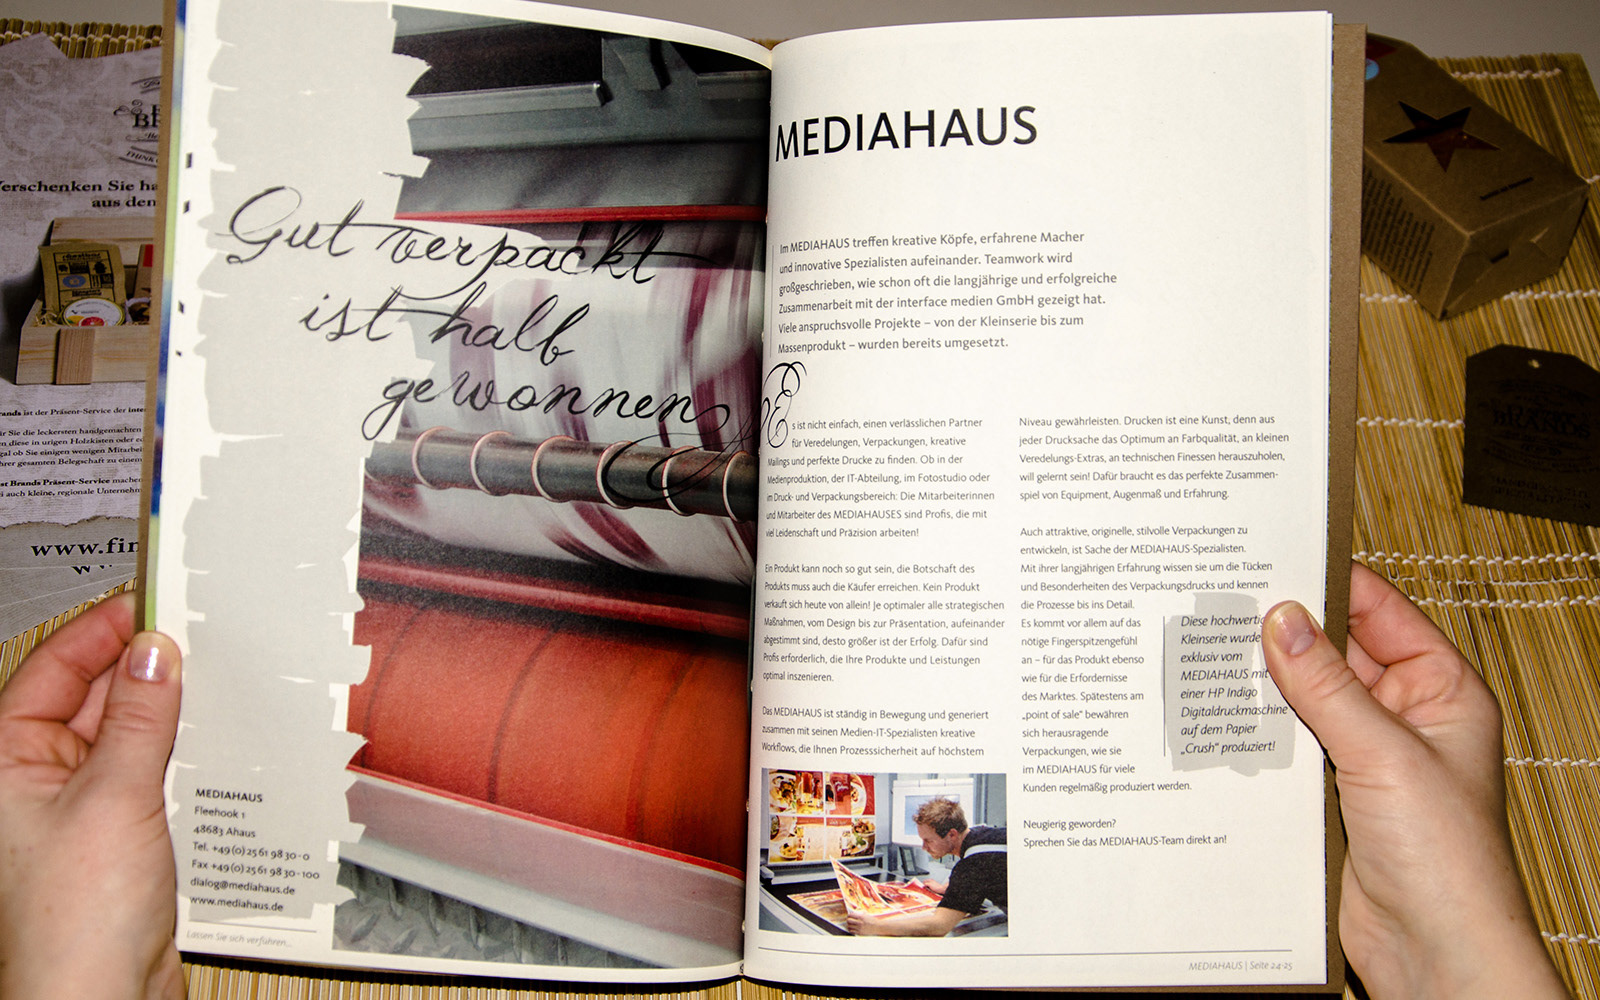 Gut verpackt
ist halb
gewonnen
MEDIAHAUS
Fleehook 1
48683 Ahaus
Tel. +49 (0) 25 61 98 30 - 0
Fax +49 (0) 25 61 98 30 - 100
dialog@mediahaus.de
www.mediahaus.de
Lassen Sie sich verführen...
MEDIAHAUS
Im MEDIAHAUS treffen kreative Köpfe, erfahrene Macher
und innovative Spezialisten aufeinander. Teamwork wird
großgeschrieben, wie schon oft die langjährige und erfolgreiche
Zusammenarbeit mit der interface medien GmbH gezeigt hat.
Viele anspruchsvolle Projekte – von der Kleinserie bis zum
Massenprodukt – wurden bereits umgesetzt.
Es ist nicht einfach, einen verlässlichen Partner
für Veredelungen, Verpackungen, kreative
Mailings und perfekte Drucke zu finden. Ob in der
Medienproduktion, der IT-Abteilung, im Fotostudio oder
im Druck- und Verpackungsbereich: Die Mitarbeiterinnen
und Mitarbeiter des MEDIAHAUSES sind Profis, die mit
viel Leidenschaft und Präzision arbeiten!
Ein Produkt kann noch so gut sein, die Botschaft des
Produkts muss auch die Käufer erreichen. Kein Produkt
verkauft sich heute von allein! Je optimaler alle strategischen
Maßnahmen, vom Design bis zur Präsentation, aufeinander
abgestimmt sind, desto größer ist der Erfolg. Dafür sind
Profis erforderlich, die Ihre Produkte und Leistungen
optimal inszenieren.
Das MEDIAHAUS ist ständig in Bewegung und generiert
zusammen mit seinen Medien-IT-Spezialisten kreative
Workflows, die Ihnen Prozesssicherheit auf höchstem
Niveau gewährleisten. Drucken ist eine Kunst, denn aus
jeder Drucksache das Optimum an Farbqualität, an kleinen
Veredelungs-Extras, an technischen Finessen herauszuholen,
will gelernt sein! Dafür braucht es das perfekte Zusammen-
spiel von Equipment, Augenmaß und Erfahrung.
Auch attraktive, originelle, stilvolle Verpackungen zu
entwickeln, ist Sache der MEDIAHAUS-Spezialisten.
Mit ihrer langjährigen Erfahrung wissen sie um die Tücken
und Besonderheiten des Verpackungsdrucks und kennen
die Prozesse bis ins Detail.
Es kommt vor allem auf das
nötige Fingerspitzengefühl
an – für das Produkt ebenso
wie für die Erfordernisse
des Marktes. Spätestens am
„point of sale“ bewähren
sich herausragende
Verpackungen, wie sie
im MEDIAHAUS für viele
Kunden regelmäßig produziert werden.
Neugierig geworden?
Sprechen Sie das MEDIAHAUS-Team direkt an!
Diese hochwertig
Kleinserie wurde
exklusiv vom
MEDIAHAUS mit
einer HP Indigo
Digitaldruckmaschine
auf dem Papier
„Crush“ produziert!
MEDIAHAUS | Seite 24-25
Verschenken Sie ha
aus den
www.fin